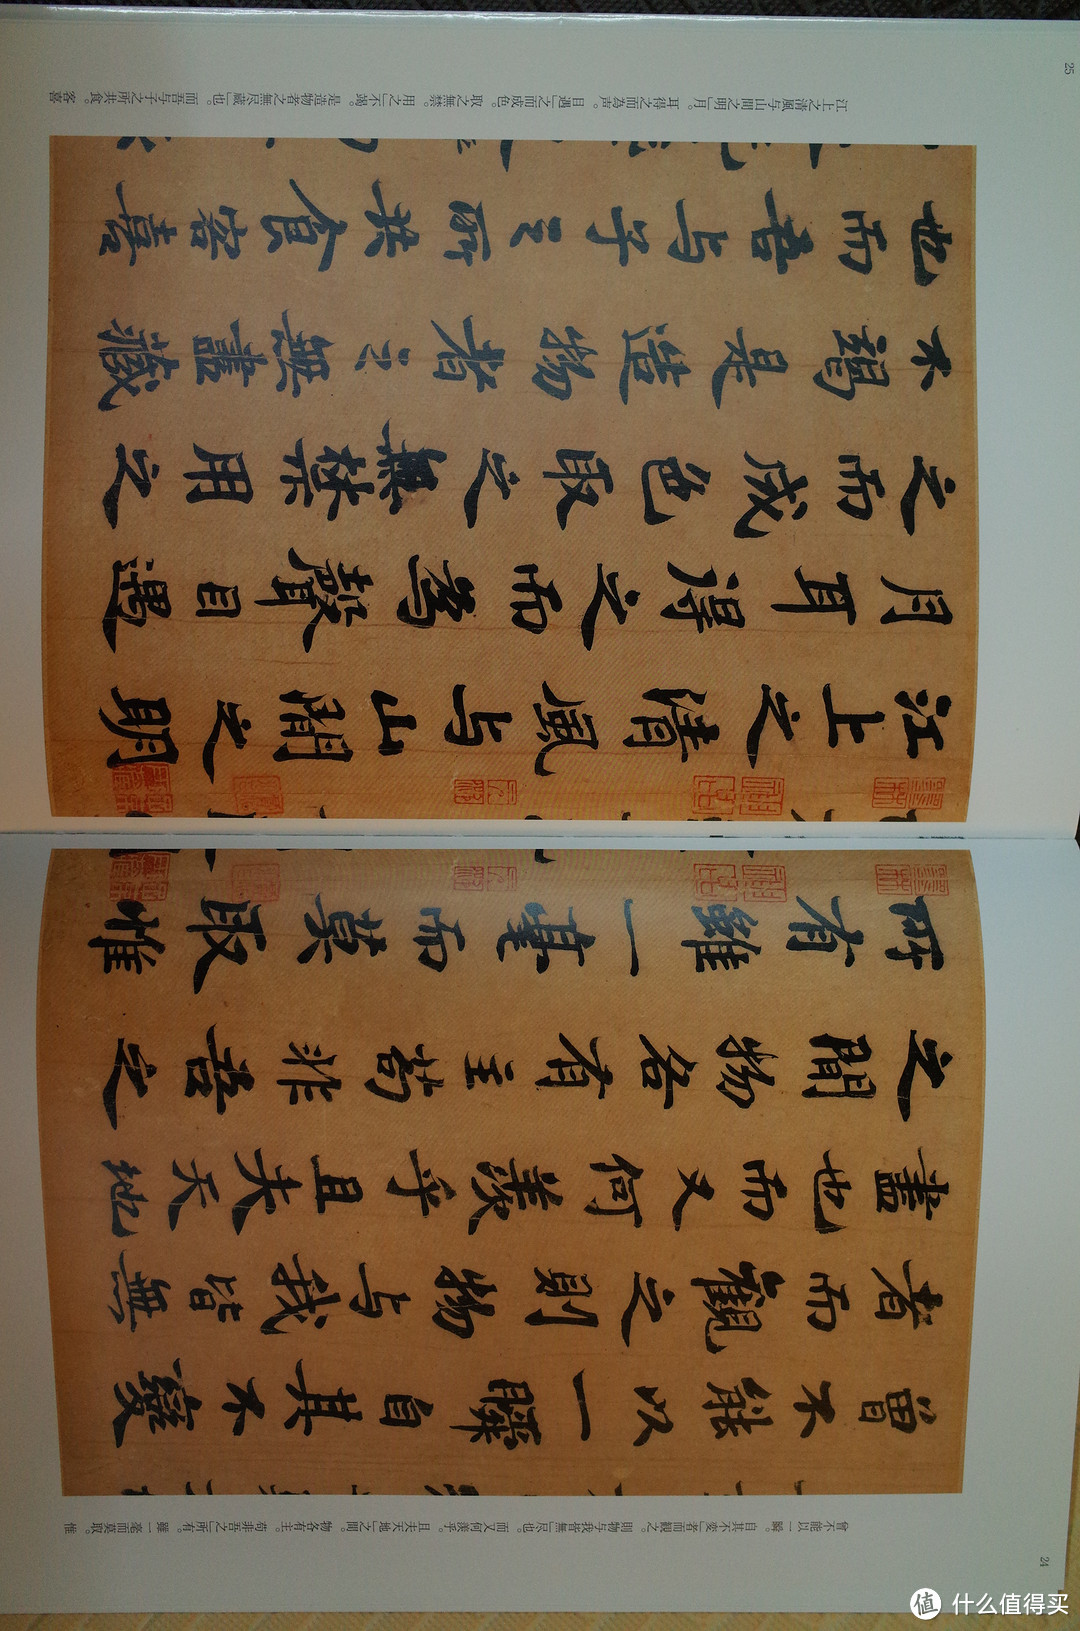 24
曾不能以一瞬。自其不変」者而観之 則物与我皆無」尽也。而又何羨乎。且夫天地」之間。物各有主。苟非吾之」所有。雖一毫而莫取。惟
曾不能以一瞬自其不變
者而觀之則物与我皆無
盡也而又何羨乎且夫天地
之間物各有主苟非吾之
所有雖一毫而莫取惟
25
江上之清風与山間之明」月。耳得之而為声。目遇」之而成色。取之無禁。用之」不竭。是造物者之無尽蔵」也。而吾与子之所共食。客喜
江上之清風与山間之明
月耳得之而為聲目遇
之而成色取之無禁用之
不竭是造物者之無盡藏
也而吾与子之所共食客喜
值 什么值得买